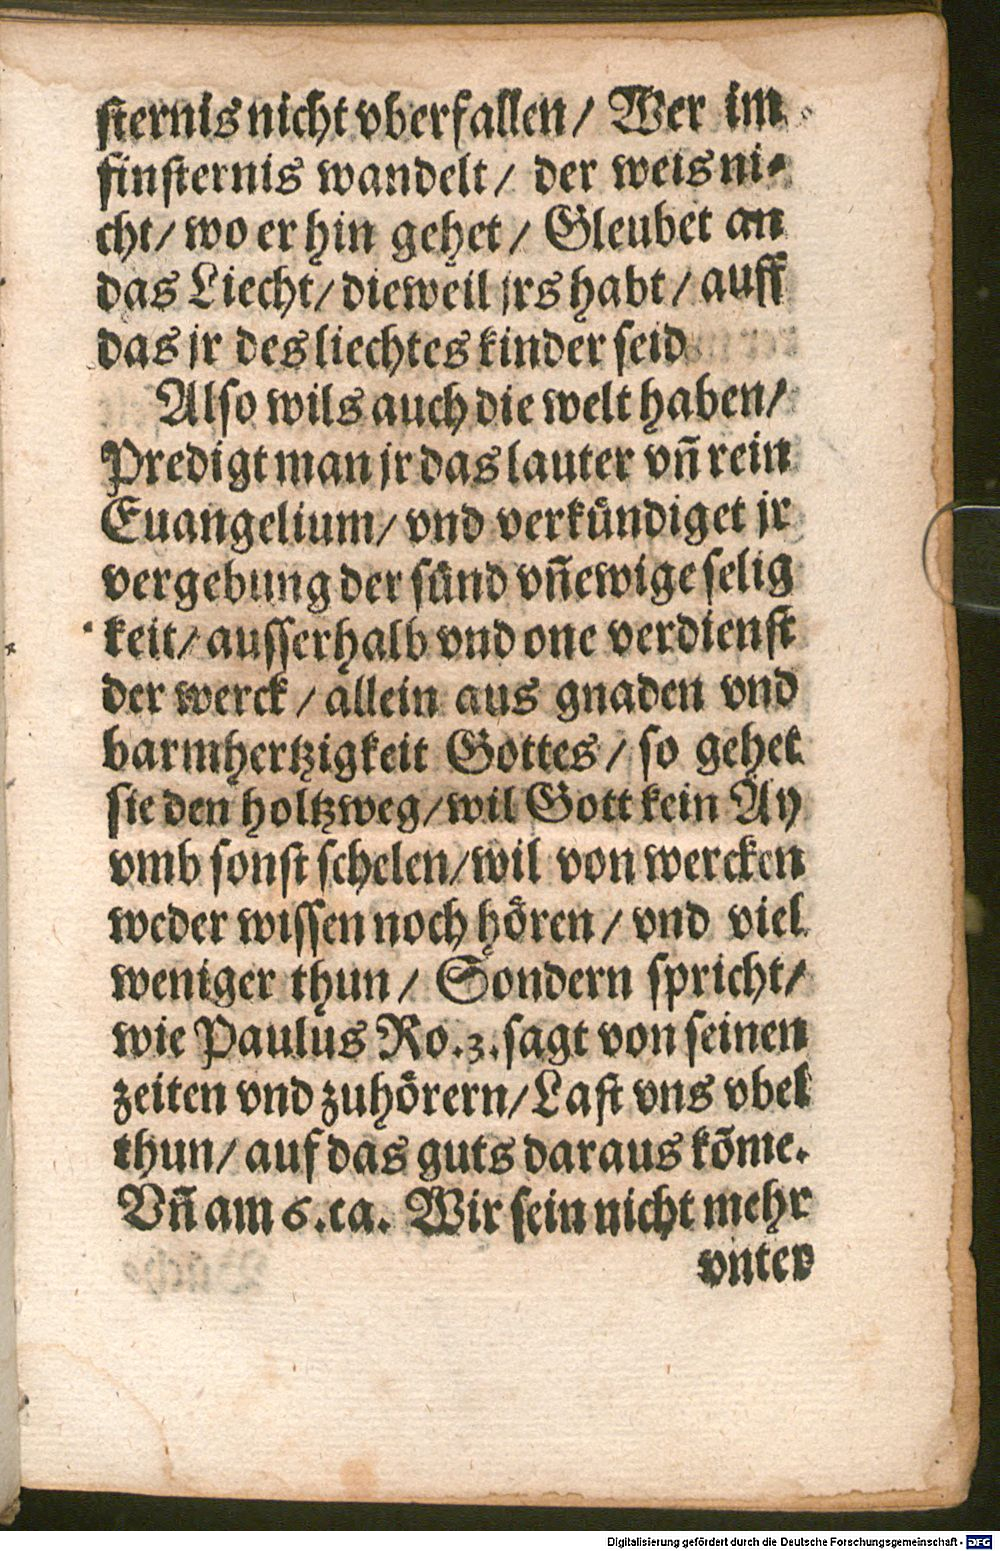 sternis nicht vberfallen / Wer im
finsternis wandelt / der weis ni-
cht / wo er hin gehet / Gleubet an
das Liecht / dieweil jrs habt / auff
das jr des liechtes kinder seid
Also wils auch die welt haben /
Predigt man jr das lauter vñ rein
Euangelium / vnd verkündiget jr
vergebung der sünd vñ ewige selig
keit / ausserhalb vnd one verdienst
der werck / allein aus gnaden vnd
barmhertzigkeit Gottes / so gehet
sie den holtzweg / wil Gott kein Ay
vmb sonst schelen / wil von wercken
weder wissen noch hören / vnd viel
weniger thun / Sondern spricht /
wie Paulus Ro. 3. sagt von seinen
zeiten vnd zuhörern / Last vns vbel
thun / auf das guts daraus kõme.
Vñ am 6. ca. Wir sein nicht mehr
vnter
Digitalisierung gefördert durch die Deutsche Forschungsgemeinschaft - DFG